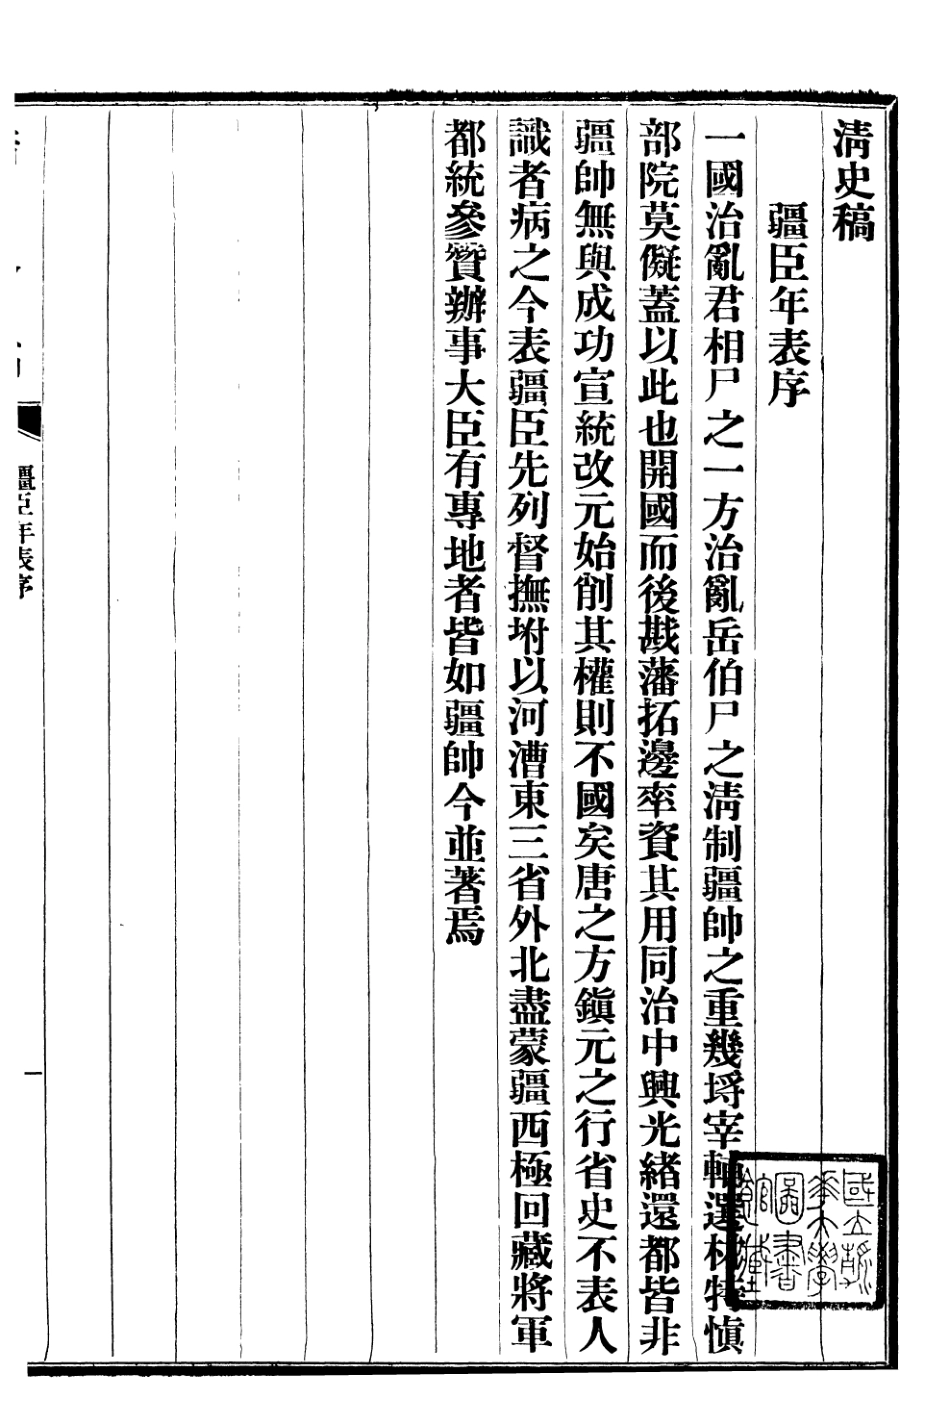 清史稿
疆臣年表序
一國治亂君相尸之一方治亂岳伯尸之清制疆帥之重幾埒宰輔選材特慎
部院莫儗蓋以此也開國而後戡藩拓邊率資其用同治中興光緒還都皆非
疆帥無與成功宣統改元始削其權則不國矣唐之方鎮元之行省史不表人
識者病之今表疆臣先列督撫坿以河漕東三省外北盡蒙疆西極回藏將軍
都統參贊辦事大臣有專地者皆如疆帥今並著焉
疆臣年表序
一